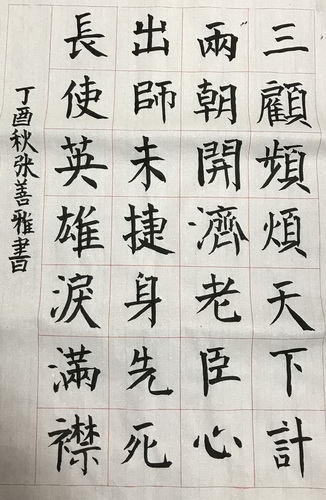 三顧頻煩天下計
兩朝開濟老臣心
出師未捷身先死
長使英雄淚滿襟
丁酉秋张善雅書